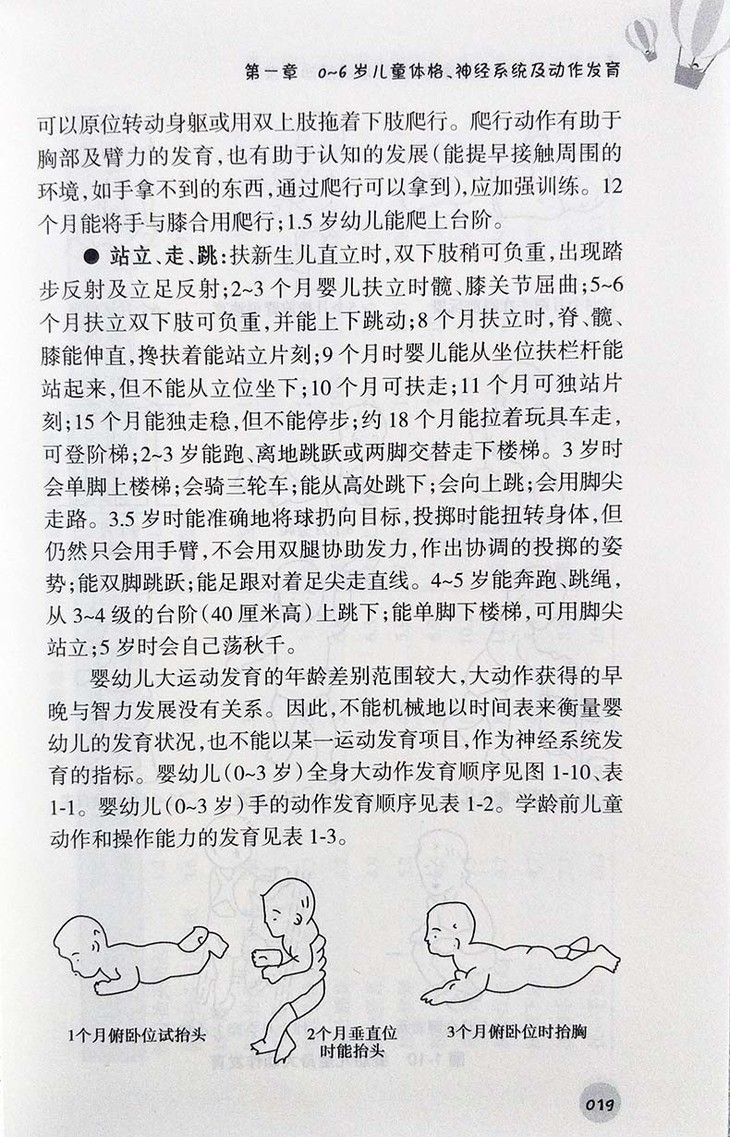 第一章 0~6岁儿童体格、神经系统及动作发育
可以原位转动身躯或用双上肢拖着下肢爬行。爬行动作有助于
胸部及臂力的发育,也有助于认知的发展(能提早接触周围的
环境,如手拿不到的东西,通过爬行可以拿到),应加强训练。12
个月能将手与膝合用爬行;1.5岁幼儿能爬上台阶。
● 站立、走、跳:扶新生儿直立时,双下肢稍可负重,出现踏
步反射及立足反射;2~3个月婴儿扶立时髋、膝关节屈曲;5~6
个月扶立双下肢可负重,并能上下跳动;8个月扶立时,脊、髋、
膝能伸直,搀扶着能站立片刻;9个月时婴儿能从坐位扶栏杆能
站起来,但不能从立位坐下;10个月可扶走;11个月可独站片
刻;15个月能独走稳,但不能停步;约18个月能拉着玩具车走,
可登阶梯;2~3岁能跑、离地跳跃或两脚交替走下楼梯。3岁时
会单脚上楼梯;会骑三轮车;能从高处跳下;会向上跳;会用脚尖
走路。3.5岁时能准确地将球扔向目标,投掷时能扭转身体,但
仍然只会用手臂,不会用双腿协助发力,作出协调的投掷的姿
势;能双脚跳跃;能足跟对着足尖走直线。4~5岁能奔跑、跳绳,
从3~4级的台阶(40厘米高)上跳下;能单脚下楼梯,可用脚尖
站立;5岁时会自己荡秋千。
婴幼儿大运动发育的年龄差别范围较大,大动作获得的早
晚与智力发展没有关系。因此,不能机械地以时间表来衡量婴
幼儿的发育状况,也不能以某一运动发育项目,作为神经系统发
育的指标。婴幼儿(0~3岁)全身大动作发育顺序见图1-10、表
1-1。婴幼儿(0~3岁)手的动作发育顺序见表1-2。学龄前儿童
动作和操作能力的发育见表1-3。
1个月俯卧位试抬头
2个月垂直位
时能抬头
3个月俯卧位时抬胸
019